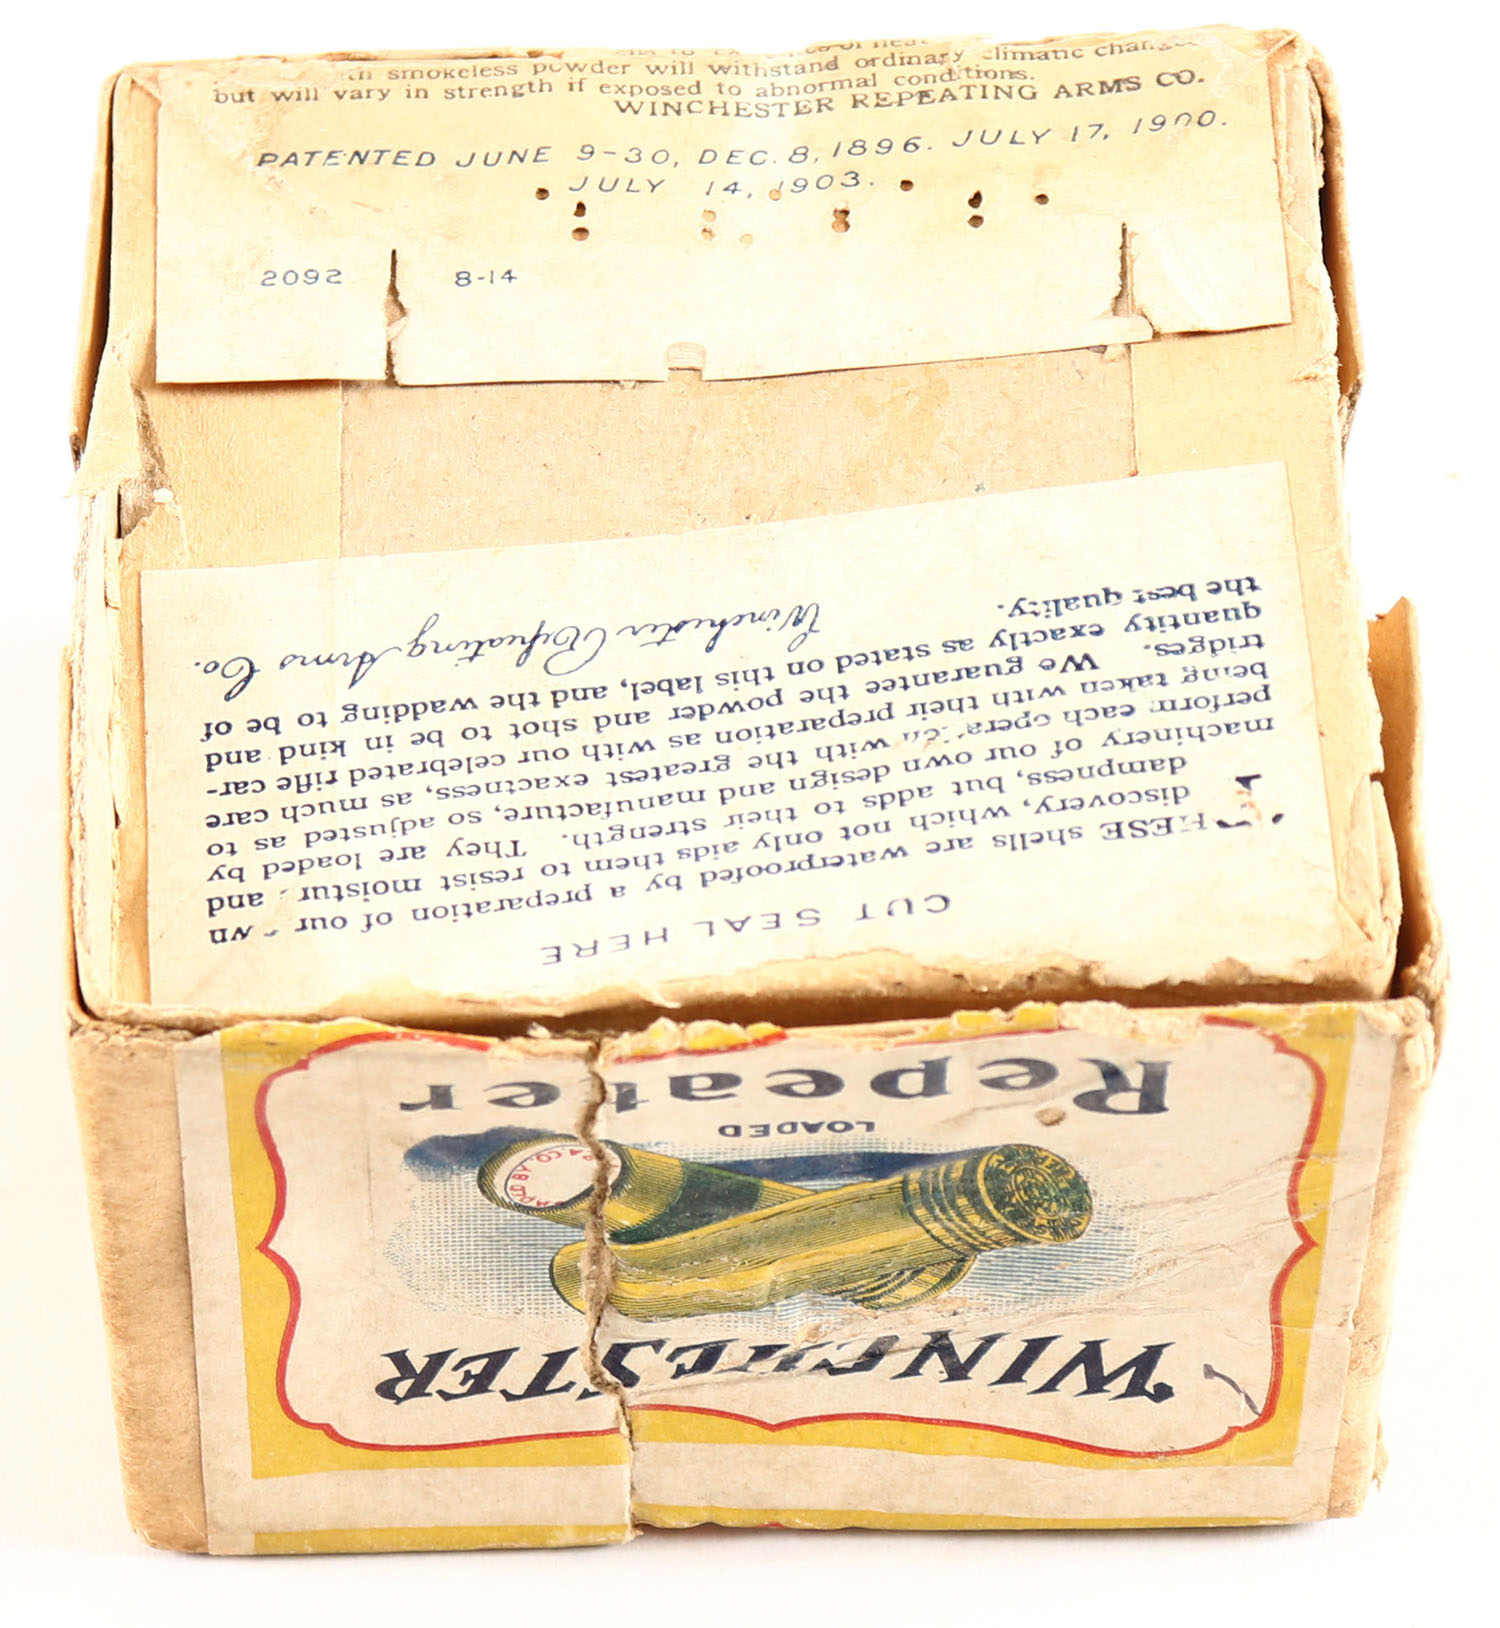 smokeless powder will withstand ordinary climatic
but will vary in strength if exposed to abnormal conditions.
WINCHESTER REPEATING ARMS CO.
PATENTED JUNE 9-30, DEC. 8, 1896. JULY 17, 1900.
JULY 14, 1903.
2092 8-14
CUT SEAL HERE
THESE shells are waterproofed by a preparation of our own
discovery, which not only aids them to resist moisture and
dampness, but adds to their strength. They are loaded by
machinery of our own design and manufacture, so adjusted as to
perform each operation with the greatest exactness, as much care
being taken with their preparation as with our celebrated rifle car-
tridges. We guarantee the powder and shot to be in kind and
quantity exactly as stated on this label, and the wadding to be of
the best quality.
Winchester Repeating Arms Co.
WINCHESTER
LOADED
Repeater